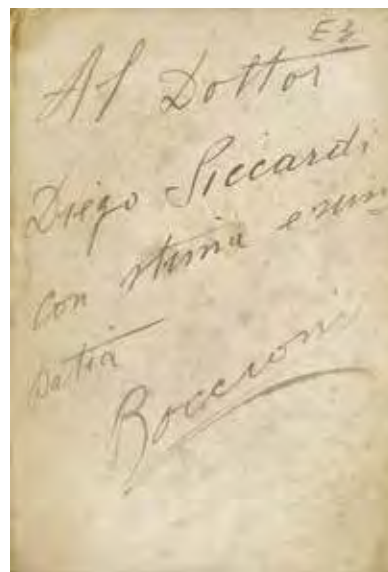 Al Dottor
Diego Siccardi
con stima e sim=
patia
Boccioni